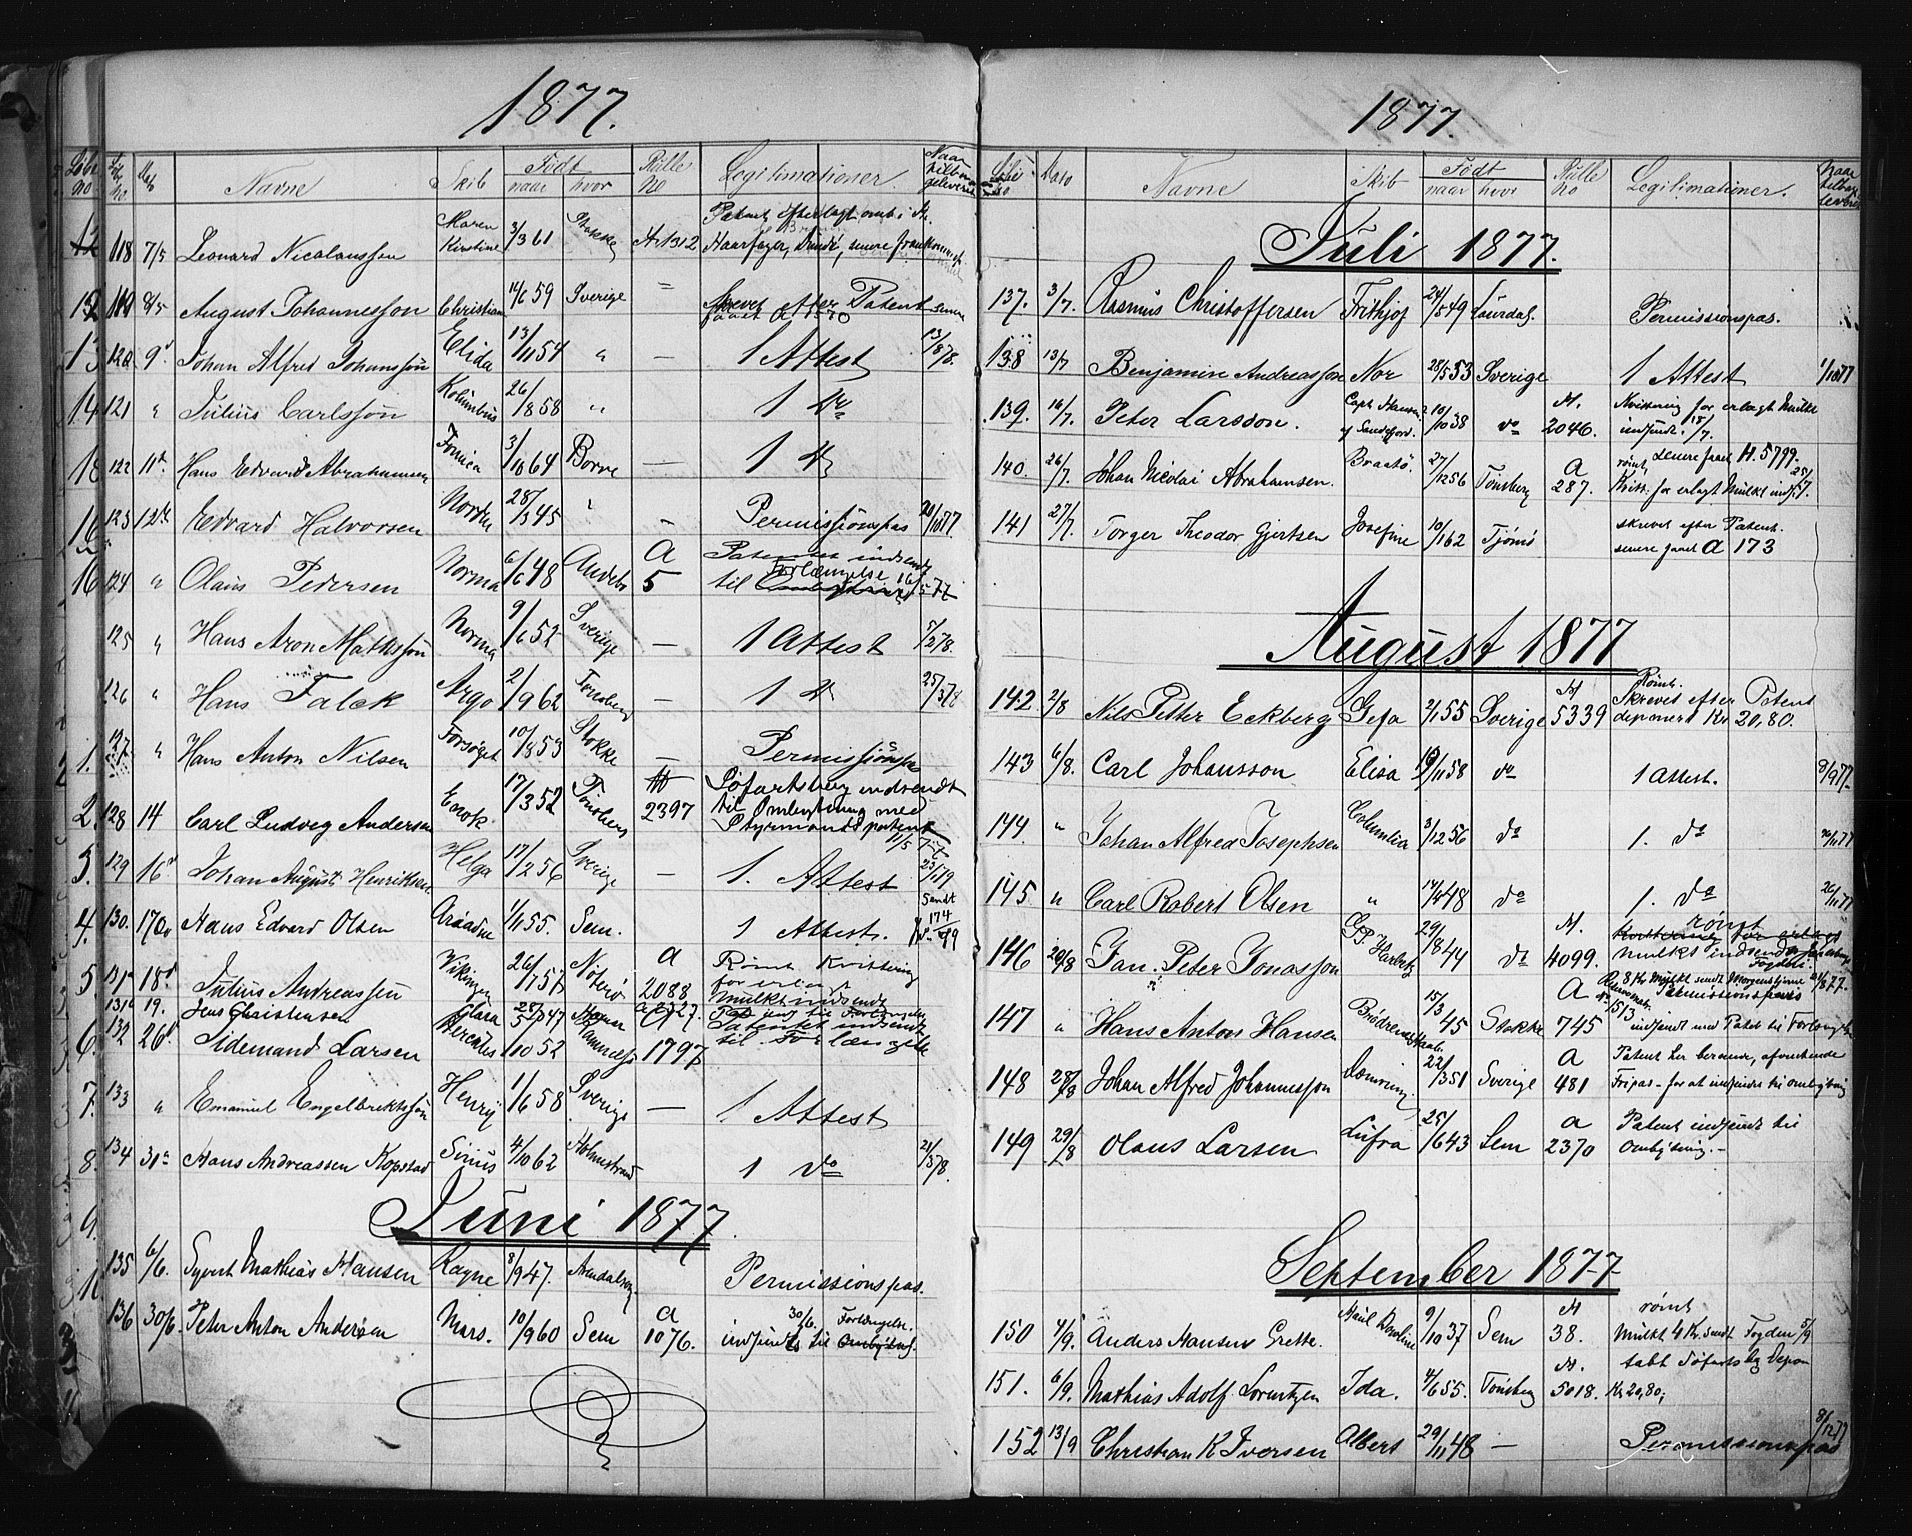 1877.
Løbe no Dato Navne Skib Født naar hvor Rulle No Legitimationer. Naar tilbageleveret
118 7/5 Leonard Nicolaussen Maren Kirstine 3/3 61 Stokke A 1312 Patent efterlagt omb. i
Haarfager, Dundé, senere fremkommet
119 8/5 August Johannesson Christiane 14/6 59 Sverige " Skrevet efter Patent senere
faaet A 1570
13 120 9d Johan Alfred Johansson Elida 13/11 54 " — 1 Attest 13/8 78.
14 121 " Julius Carlsson Kolumbus 26/8 58 " 1 do
122 11d Hans Edvard Abrahamsen Formica 3/10 64 Borre — 1 do
123 12d Edvard Halvorsen Norden 28/3 45 " — Permissionspas 20/10 77
16 124 " Olaus Pedersen Norma 6/6 48 Andebo A 5 Patentet indsendt
til Ombytning Forlængelse 16/5 77
125 " Hans Aron Mathisson Norma 9/6 52 Sverige — 1 Attest 7/2 78.
126 " Hans Falck Argo 2/9 62 Tønsberg — 1 do 25/3 78
1. 127 " Hans Anton Nilsen Forsøget 10/8 53 Stokke — Permissionspas
2. 128 14 Carl Ludvig Andersen Enok 17/3 52 Tönsberg M 2397 Søfartsbog indsendt
til Ombytning med
Styrmandspatent 11/5 77
3. 129 16d Johan August Henriksen Helga 17/2 56 Sverige — 1. Attest 23/1 79
4. 130. 17do Hans Edvard Olsen Ariadne 1/11 55. Sem. 1 Attest. Sendt
5 131 18d Julius Andreassen Vikingen 26/7 57 Nøterö A 2088 Rømt Kvittering
for erlagt
mulkt indsendt
131a 19. Jens Christensen Clara 25/5 47 A 2527. Pas ind til Forlængelse
6. 132 26d Sidemand Larsen Hercules 1/10 52 Ramnæs A 1797 Patentet indsendt
til Forlængelse
7. 133 " Emanuel Engelbrektsson Henrij 1/6 58 Sverige — 1 Attest
8. 134 31d Hans Andreassen Kopstad Sirius 4/10 62 Holmestrand 1 do 21/3 78.
Juni 1877.
135 6/6. Syvert Mathias Hansen Ragne 8/9 47. Arendal Permissionspas.
136 30/6. Peter Anton Andersen Mars. 10/9 60 Sem A 1076. 30/6. Forlængelse.
indsendt til Ombytng.
1877.
Løbe no Dato Navne Skib Født naar hvor Rulle no Legitimationer. Naar tilbageleveret
Juli 1877.
137. 3/7. Rasmus Christoffersen Frithjof 24/5 49 Laurdal. Permissionspas.
138 13/7 Benjamin Andreasson Nor 28/5 53 Sverige 1 Attest 1/10 77
139. 16/7. Peter Larsson. Capt. Hansen af Sandefjord. 10/10 38 do M. 2046. Kvittering for erlagt Mulkt
indsendt. 18/7.
140. 26/7. Johan Nicolai Abrahamsen. Braatö. 27/12 56 Tönsberg A 287. rømt, senere faaet M. 5799.
Kvitt. for erlagt Mulkt indst. 25/7.
141 27/7. Torger Theodor Gjertsen Josefine 10/1 62 Tjömö skrevet efter Patent.
senere faaet A 173
August 1877
142. 2/8 Nils Petter Eckberg Gefa 2/1 55 Sverige M 5339 Rømt.
Skrevet efter Patent
deponert Kr 20,80.
143 6/8. Carl Johansson Elisa 19/11 58 do 1 attest. 9/9 77
144. " Johan Alfred Josephsen Columbia 3/12 56 do 1. do
145 " Carl Robert Olsen " 14/4 48 do 1. do 26/11 77
146 20/8 Jan. Peter Jonasson 29/8 44 do M. 4099. rømt
Kvittering for erlagt
mulkt indsendt
Fogden
147 " Hans Anton Hansen Brødrenes Haab. 15/3 45 Stokke A 745 8 Kr Mulkt sendt Morgenstierne
Permissionspas
indsendt med Patent til Forlængelse
148 28/8 Johan Alfred Johannesson Dæmring 22/3 51 Sverige A 481 Patent her beroende, afventende
Fripas - for at indsendes til ombytning
149 29/8 Olaus Larsen Lufra 25/6 43 Sem A 2370 Patent indsendt til
Ombytning. -
September 1877
150 4/9. Anders Hansen Grette. 9/10 37 Sem M 38. rømt
Mulkt 4 Kr. sendt Fogden 5/9
151. 6/9. Mathias Adolf Lorentzen Ida. 4/6 55. Tönsberg M. 5018. tabt Søfartsbg Depon
Kr. 20,80,
152 13/9 Christian K Iversen Albert 29/11 48 — Permissionspas 8/12 77